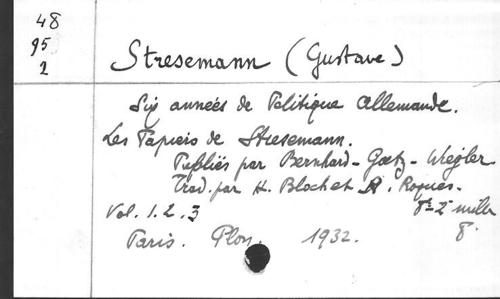 48
95
2
Stresemann (Gustave)
Six années de Politique Allemande.
Les Papiers de Stresemann.
Publiés par Bernhard - Goetz - Wiegler
Trad. par H. Bloch et P. Roques.
Vol. 1. 2. 3
mille
Paris. Plon 1932. 8°